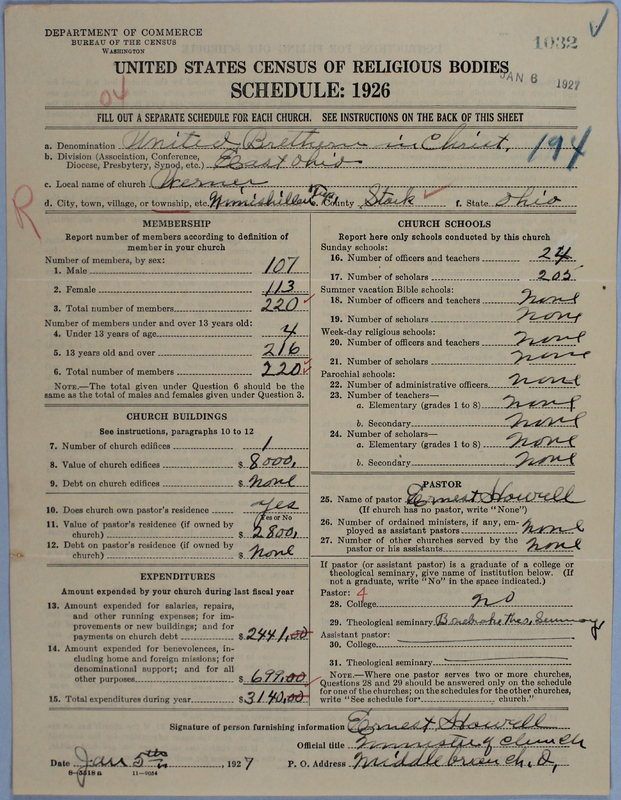 DEPARTMENT OF COMMERCE
BUREAU OF THE CENSUS
WASHINGTON
1032
UNITED STATES CENSUS OF RELIGIOUS BODIES
JAN 8 1927
SCHEDULE: 1926
04
FILL OUT A SEPARATE SCHEDULE FOR EACH CHURCH. SEE INSTRUCTIONS ON THE BACK OF THIS SHEET
a. Denomination United Brethren in Christ.
194
b. Division (Association, Conference, Diocese, Presbytery, Synod, etc.) East Ohio
c. Local name of church Werner
R
d. City, town, village, or township, etc. Nimishillen Twp. e. County Stark f. State Ohio
MEMBERSHIP
Report number of members according to definition of
member in your church
Number of members, by sex:
1. Male 107
2. Female 113
3. Total number of members 220
Number of members under and over 13 years old:
4. Under 13 years of age 4
5. 13 years old and over 216
6. Total number of members 220
NOTE.—The total given under Question 6 should be the
same as the total of males and females given under Question 3.
CHURCH BUILDINGS
See instructions, paragraphs 10 to 12
7. Number of church edifices 1
8. Value of church edifices $ 8000,
9. Debt on church edifices $ None
10. Does church own pastor's residence yes
(Yes or No)
11. Value of pastor's residence (if owned by
church) $ 2800,
12. Debt on pastor's residence (if owned by
church) $ None
EXPENDITURES
Amount expended by your church during last fiscal year
13. Amount expended for salaries, repairs,
and other running expenses; for im-
provements or new buildings; and for
payments on church debt $ 2441,00
14. Amount expended for benevolences, in-
cluding home and foreign missions; for
denominational support; and for all
other purposes $ 699,00
15. Total expenditures during year $ 3140,00
CHURCH SCHOOLS
Report here only schools conducted by this church
Sunday schools:
16. Number of officers and teachers 24
17. Number of scholars 205
Summer vacation Bible schools:
18. Number of officers and teachers None
19. Number of scholars None
Week-day religious schools:
20. Number of officers and teachers None
21. Number of scholars None
Parochial schools:
22. Number of administrative officers None
23. Number of teachers—
a. Elementary (grades 1 to 8) None
b. Secondary None
24. Number of scholars—
a. Elementary (grades 1 to 8) None
b. Secondary None
PASTOR
25. Name of pastor Ernest Howell
(If church has no pastor, write "None")
26. Number of ordained ministers, if any, em-
ployed as assistant pastors None
27. Number of other churches served by the
pastor or his assistants None
If pastor (or assistant pastor) is a graduate of a college or
theological seminary, give name of institution below. (If
not a graduate, write "No" in the space indicated.)
Pastor: 4
28. College no
29. Theological seminary Bonebrake Theo. Seminary
Assistant pastor:
30. College
31. Theological seminary
NOTE.—Where one pastor serves two or more churches,
Questions 28 and 29 should be answered only on the schedule
for one of the churches; on the schedules for the other churches,
write "See schedule for church."
Signature of person furnishing information Ernest Howell
Official title Minister of church
Date Jan 5th, 1927 P. O. Address Middlebranch, O,
8—5518 a 11—9054